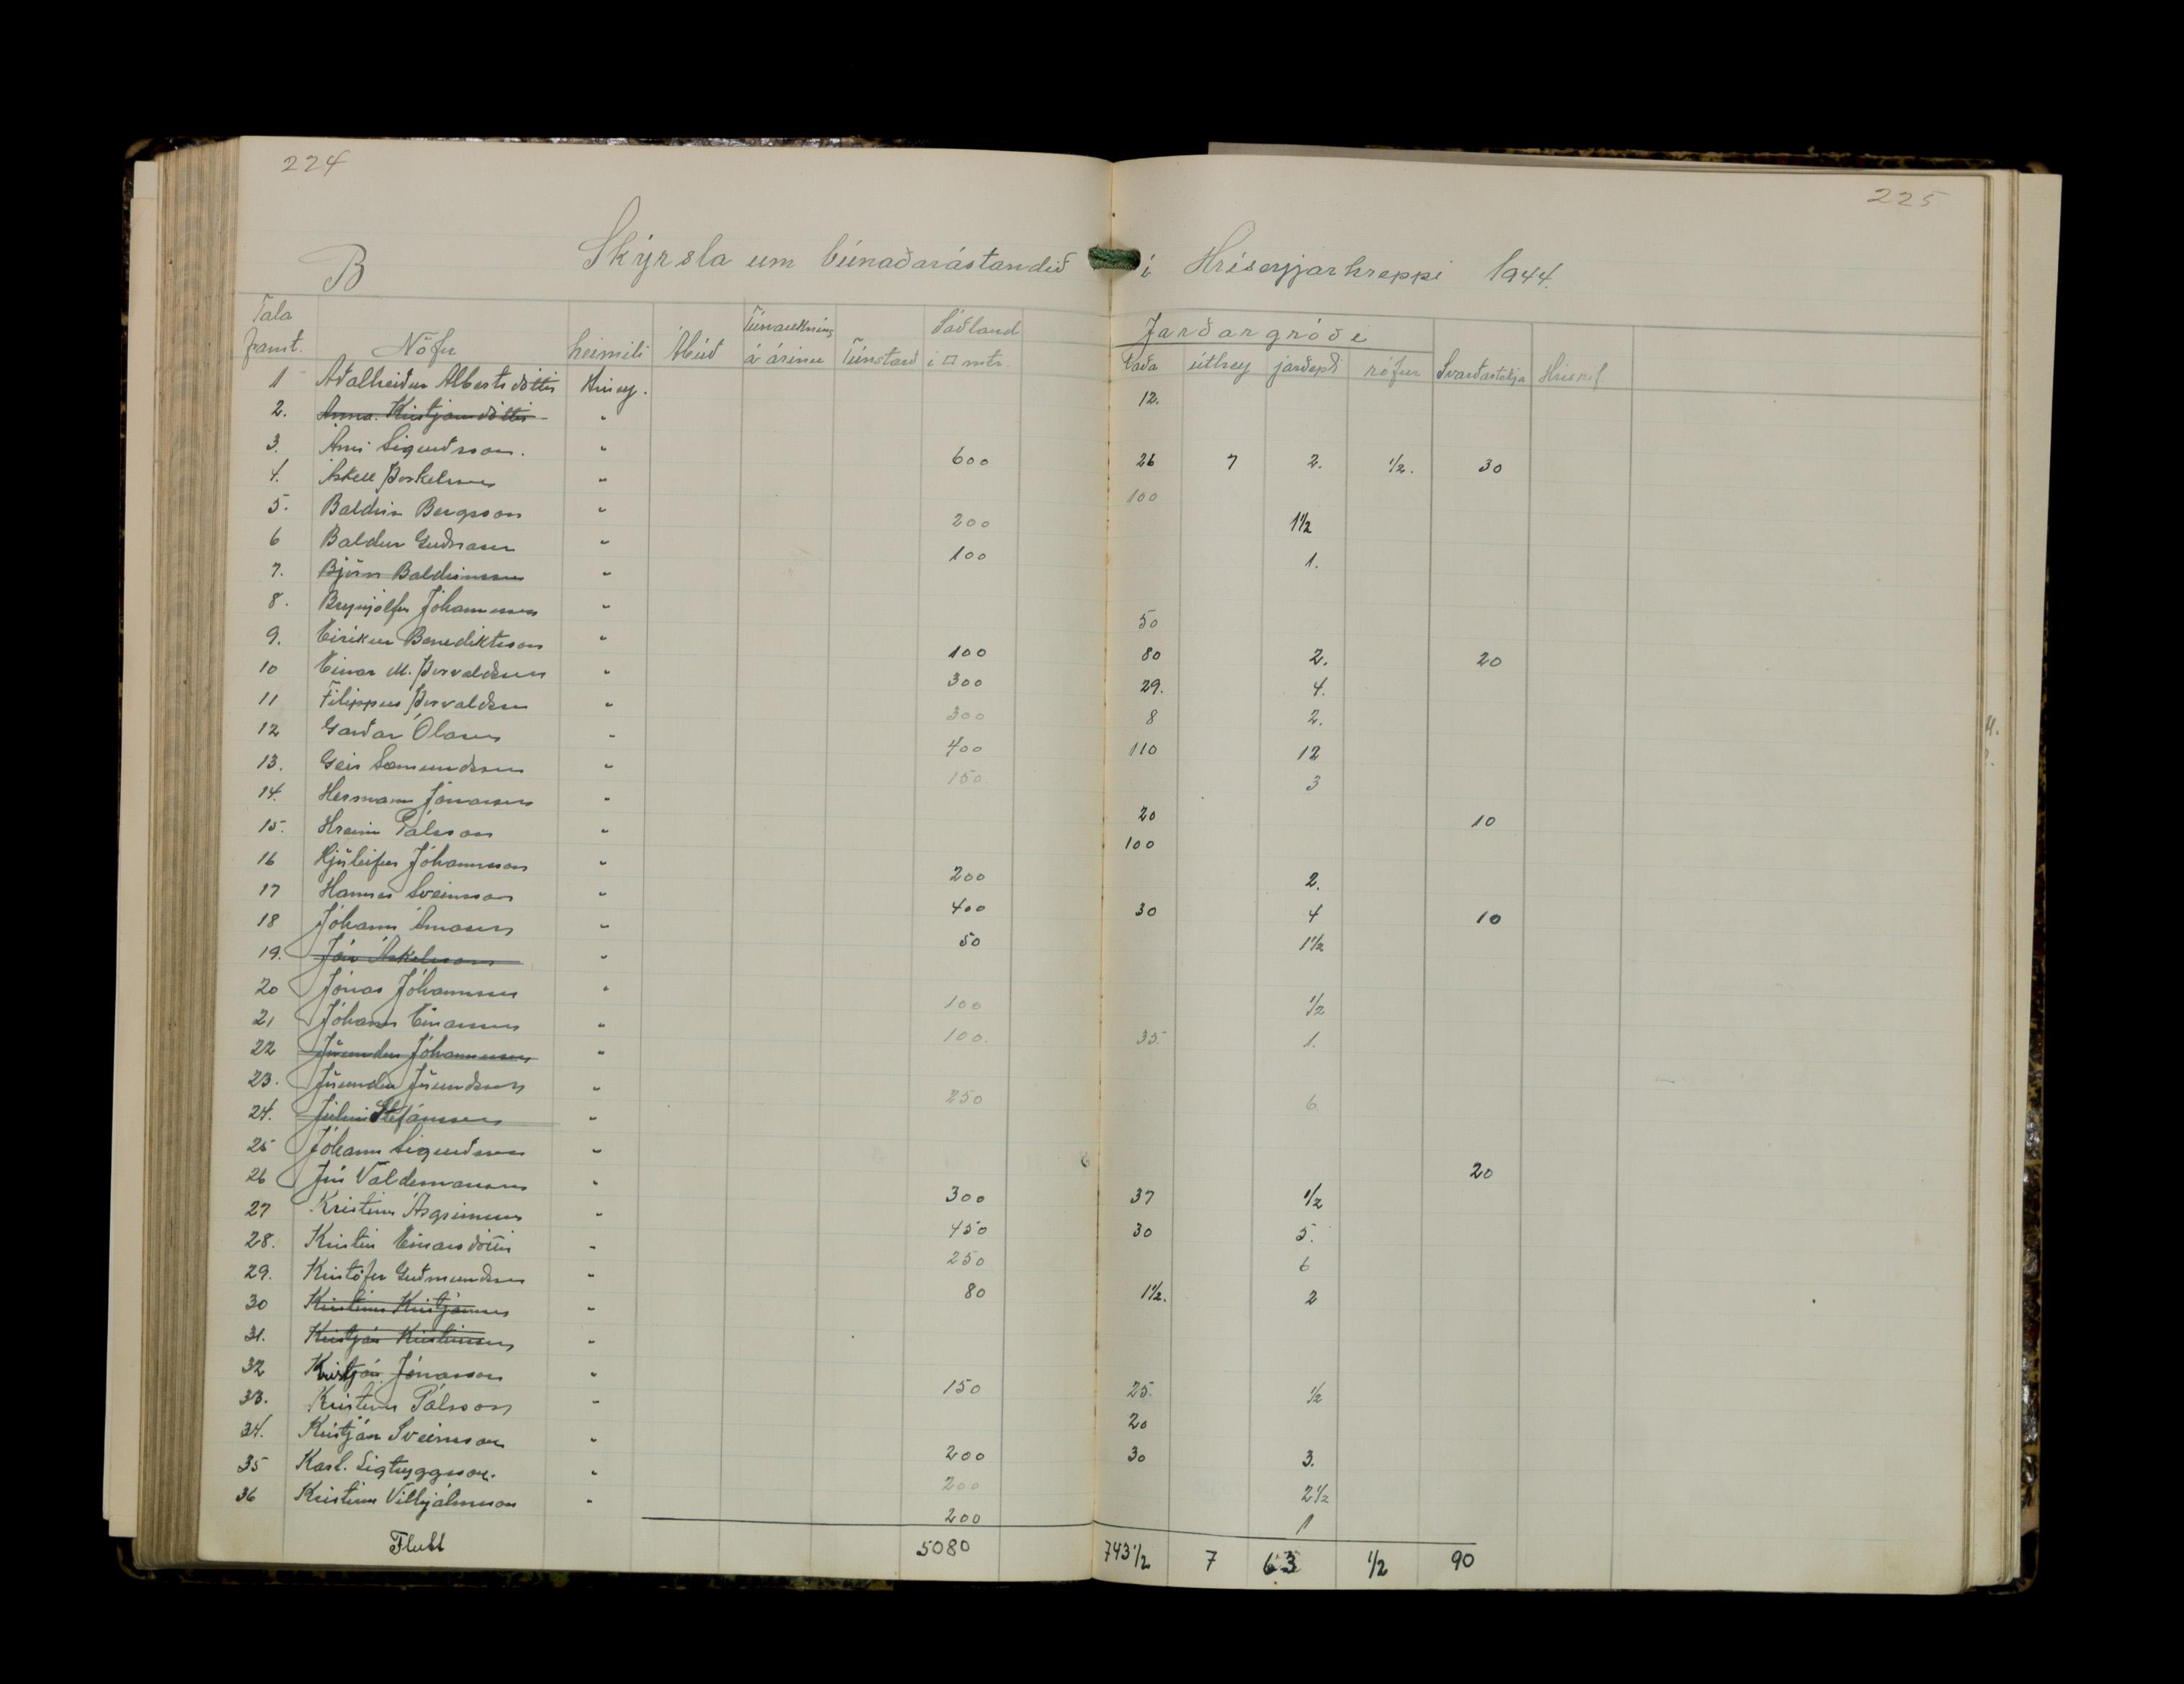 224
225
B Skýrsla um búnaðarástandið í Hríseyjarhreppi 1944.
Tala framt. Nöfn heimili Ábúð Túnaukning á árinu Túnstærð Sáðland i □ mtr. Jarðargróði
Taða úthey jarðepli rófur Svarðartekja Hrísrif
1 Aðalheiður Albertsdóttir Hrísey. 12.
2. Anna Kristjánsdóttir "
3. Árni Sigurðsson. " 600 26 7 2. 1/2. 30
4. Áskell Þorkelsson " 100
5. Baldvin Bergsson " 200 1 1/2
6 Baldur Guðnason " 100 1.
7. Björn Baldvinsson "
8. Brynjólfur Jóhannesson " 50
9. Eiríkur Benediktsson " 100 80 2. 20
10 Einar M. Þorvaldsson " 300 29. 4.
11 Filippus Þorvaldsson " 300 8 2.
12 Garðar Ólason " 400 110 12
13. Geir Sæmundsson " 150. 3
14. Hermann Jónasson " 20 10
15. Hreinn Pálsson " 100
16 Hjörleifur Jóhannsson " 200 2.
17 Hannes Sveinsson " 400 30 4 10
18 Jóhann Ámason " 50 1 1/2
19. Jón Áskelsson "
20 Jónas Jóhannsson " 100 1/2
21 Jóhann Einarsson " 100. 35. 1.
22 Jörundur Jóhannesson "
23. Jörundur Jörundsson " 250 6.
24. Júlíus Stefánsson "
25 Jóhann Sigurðsson " 20
26 Jón Valdemarsson " 300 37 1/2
27 Kristinn Ásgrímsson " 450 30 5.
28. Kristín Einarsdóttir " 250 6
29. Kristófer Guðmundsson " 80 1 1/2. 2
30 Kristinn Kristjánsson "
31. Kristján Kristinsson "
32 Kristján Jónasson " 150 25. 1/2
33. Kristinn Pálsson " 20
34. Kristján Sveinsson " 200 30 3.
35 Karl. Sigtryggsson. " 200 2 1/2
36 Kristinn Vilhjálmsson " 200 1
Flutt 5080 743 1/2 7 63 1/2 90